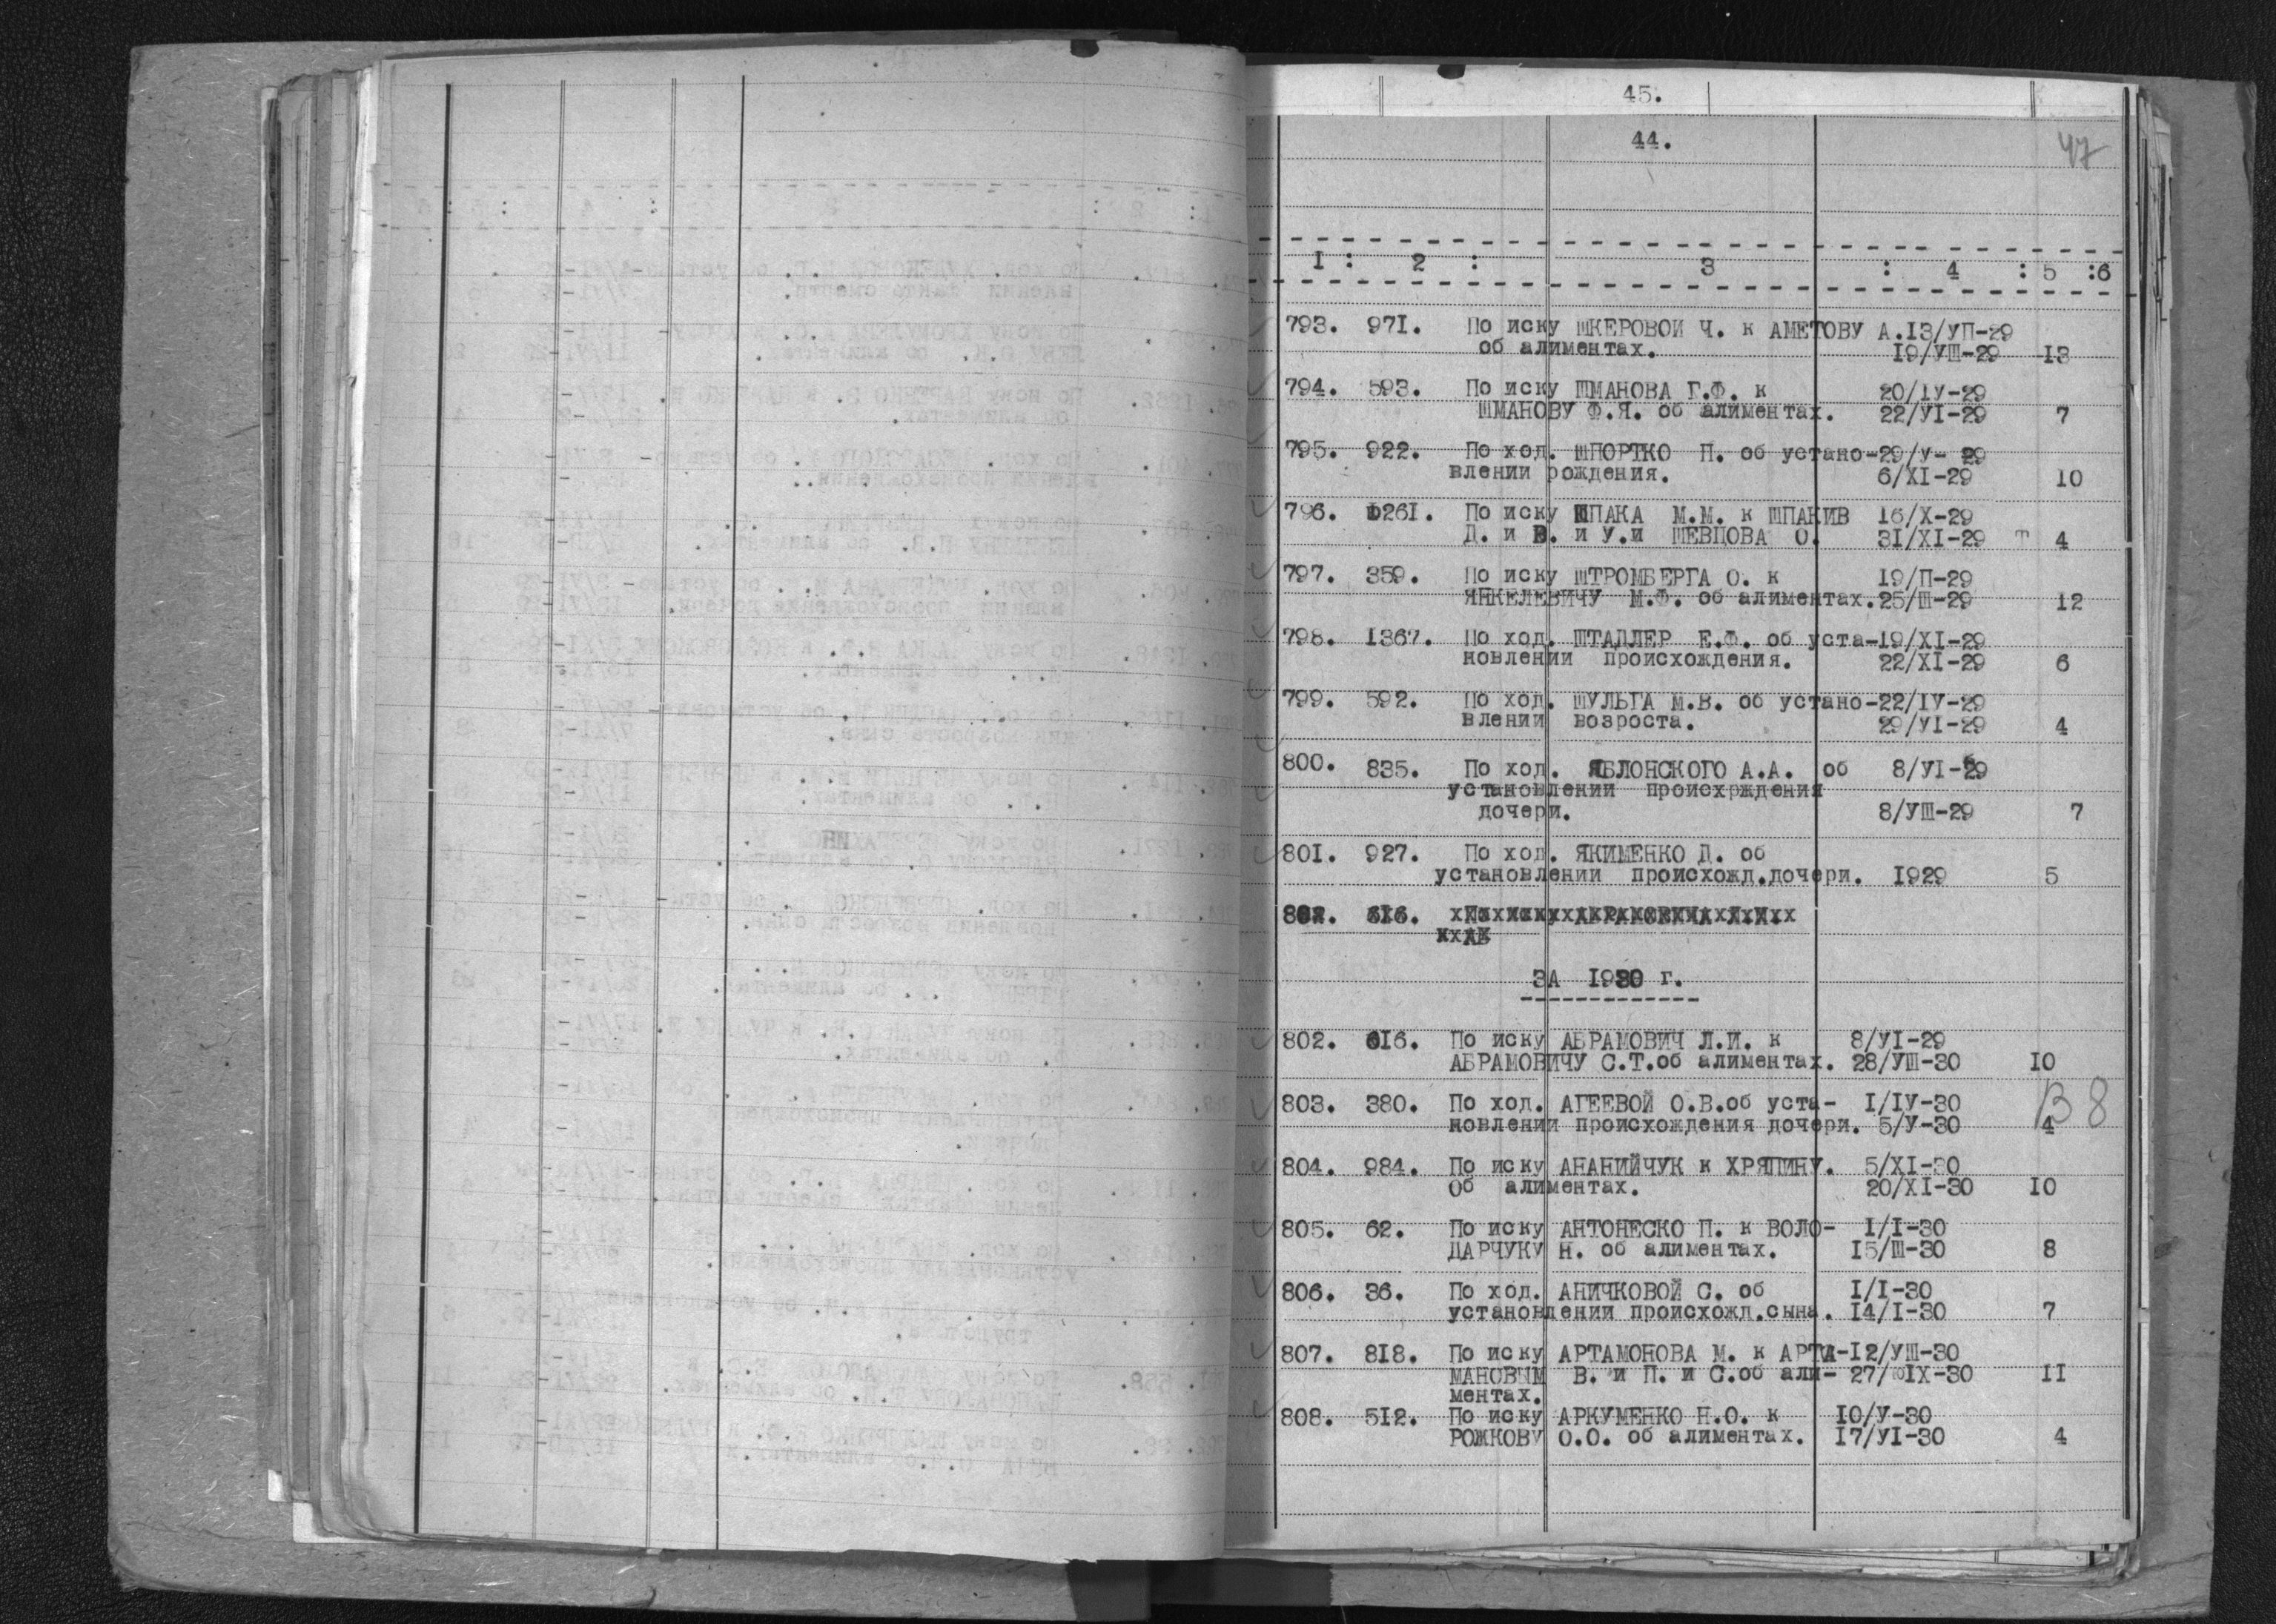 45.
44.
47
1 : 2 : 3 : 4 : 5 :6
793. 971. По иску ШКЕРОВОЙ Ч. к АМЕТОВУ А.13/УП-29
об алиментах. 19/УШ-29 13
794. 593. По иску ШМАНОВА Г.Ф. к 20/IУ-29
ШМАНОВУ Ф.Я. об алиментах. 22/УI-29 7
795. 922. По ход. ШПОРТКО П. об устано-29/У- 29
влении рождения. 6/XI-29 10
796. 1261. По иску ШПАКА М.М. к ШПАКИВ 16/X-29
Д. и В. и У.и ШЕВЦОВА О. 31/XI-29 4
797. 359. По иску ШТРОМБЕРГА О. к 19/П-29
ЯНКЕЛЕВИЧУ М.Ф. об алиментах.25/Ш-29 12
798. 1367. По ход. ШТАДЛЕР Е.Ф. об уста-19/XI-29
новлении происхождения. 22/XI-29 6
799. 592. По ход. ШУЛЬГА М.В. об устано-22/IУ-29
влении возроста. 29/УI-29 4
800. 835. По ход. ЯБЛОНСКОГО А.А. об 8/УI-29
установлении происхрждения
дочери. 8/УШ-29 7
801. 927. По ход. ЯКИМЕНКО Д. об
установлении происхожд.дочери. 1929 5
802. 616.
ЗА 1930 г.
802. 616. По иску АБРАМОВИЧ Л.И. к 8/УI-29
АБРАМОВИЧУ С.Т.об алиментах. 28/УШ-30 10
803. 380. По ход. АГЕЕВОЙ О.В.об уста- I/IУ-30
новлении происхождения дочери. 5/У-30 4
138
804. 984. По иску АНАНИЙЧУК к ХРЯПИНУ. 5/XI-30
Об алиментах. 20/XI-30 10
805. 62. По иску АНТОНЕСКО П. к ВОЛО- I/I-30
ДАРЧУКУ Н. об алиментах. 15/Ш-30 8
806. 36. По ход. АНИЧКОВОЙ С. об I/I-30
установлении происхожд.сына. 14/I-30 7
807. 818. По иску АРТАМОНОВА М. к АРТА-12/УШ-30
МАНОВЫМ В. и П. и С.об али- 27/IX-30 11
ментах.
808. 512. По иску АРКУМЕНКО Н.О. к 10/У-30
РОЖКОВУ О.О. об алиментах. 17/УI-30 4